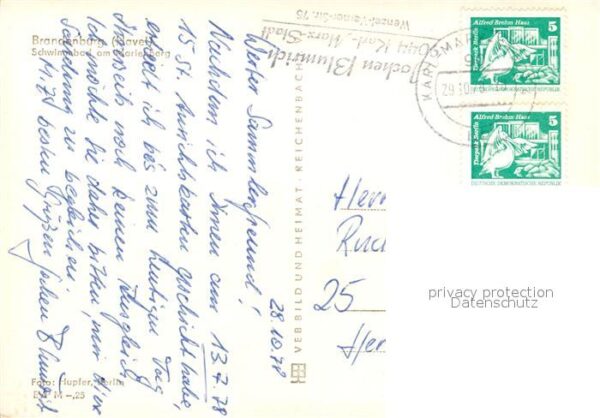 Brandenburg (Havel)
Schwimmbad am Marienberg
Jochen Blumrich
9044 Karl-Marx-Stadt
Wenzel-Verner-Str. 75
KARL-MARX
28.10.78
Werter Sammlerfreund!
Nachdem ich Ihnen am 13.7.78
15 St. Ansichtskarten geschickt habe,
erhielt ich bis zum heutigen Tag
Ihrerseits noch keinen Ausgleich
Ich möchte Sie daher bitten, mir diese
Sendung zu begleichen
Mit besten Grüßen Jochen Blumrich
Foto: Hupfer, Berlin
EVP M -,25
VEB BILD UND HEIMAT · REICHENBACH
Alfred Brehm Haus
5
Tierpark Berlin
DEUTSCHE DEMOKRATISCHE REPUBLIK
Alfred Brehm Haus
5
Tierpark Berlin
DEUTSCHE DEMOKRATISCHE REPUBLIK
Herr
25
privacy protection
Datenschutz